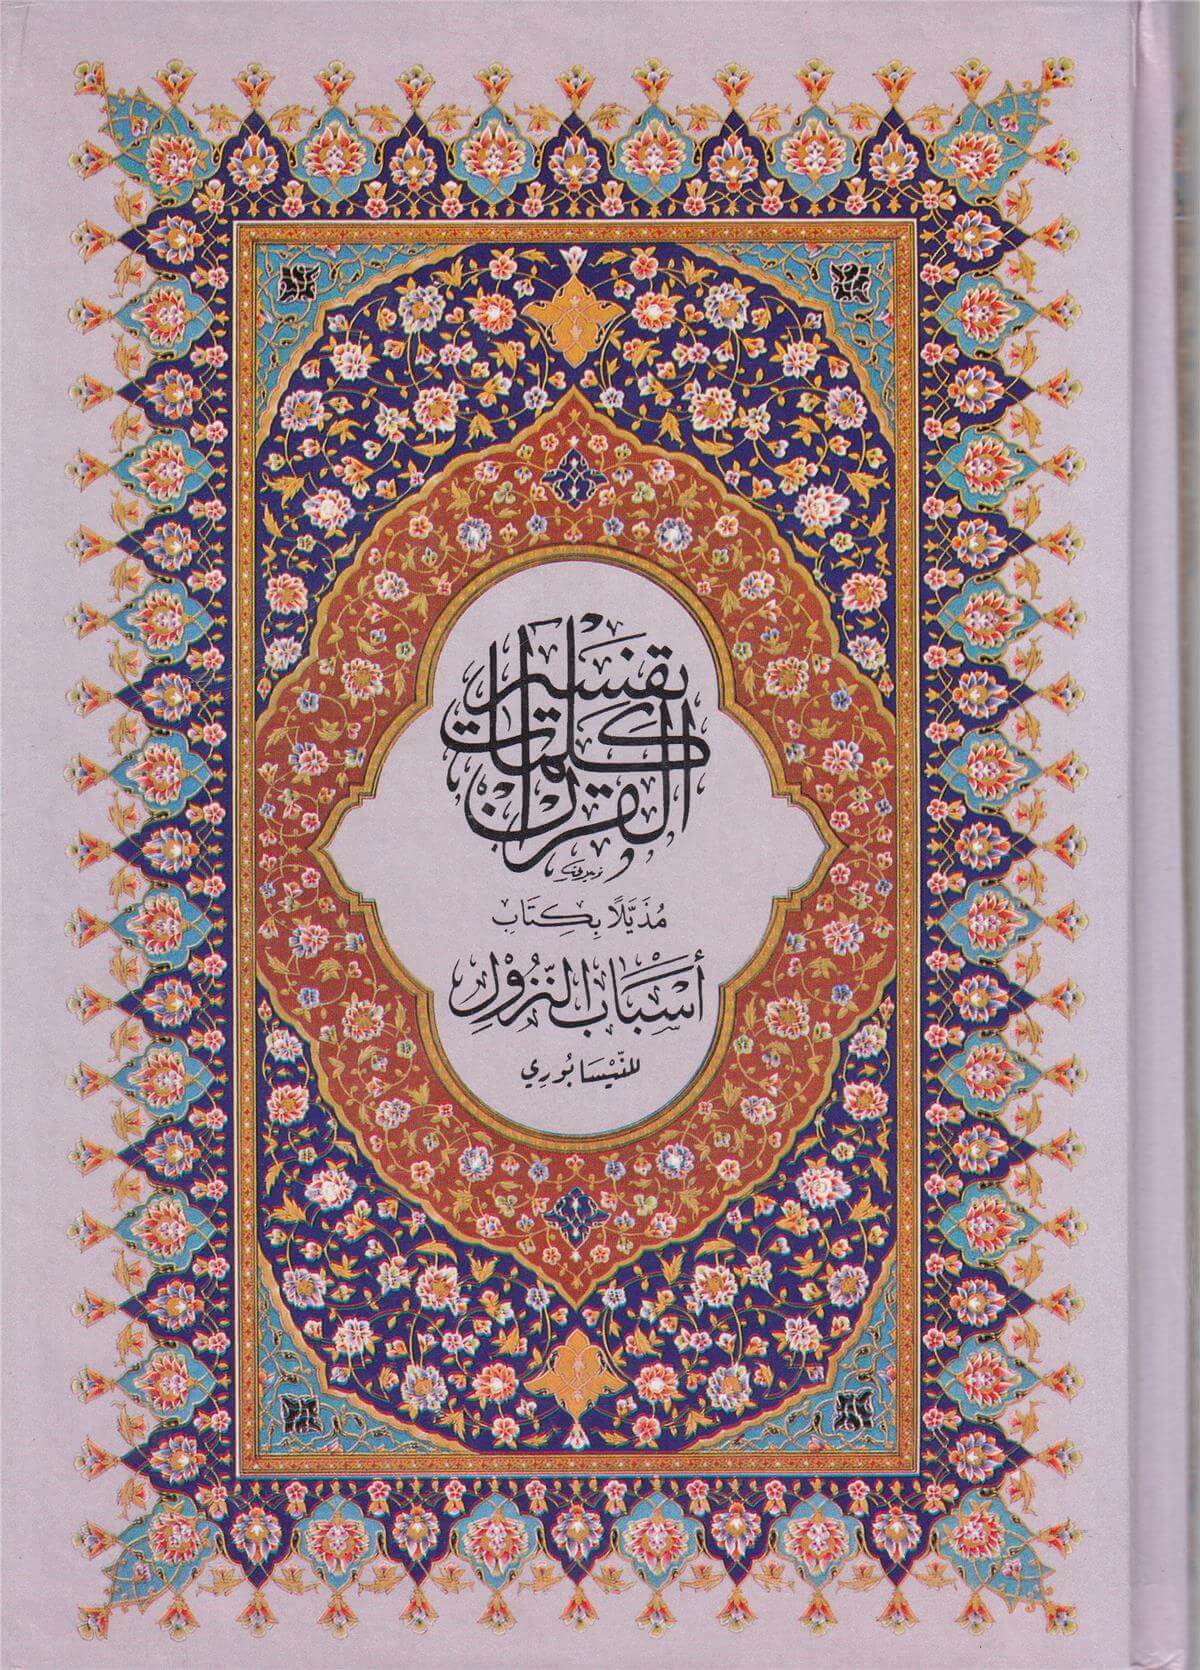 تفسير
كلمات
القرآن
مُذَيَّلًا بِكِتَابِ
أَسْبَابِ النُّزُولِ
للنَّيْسَابُورِي